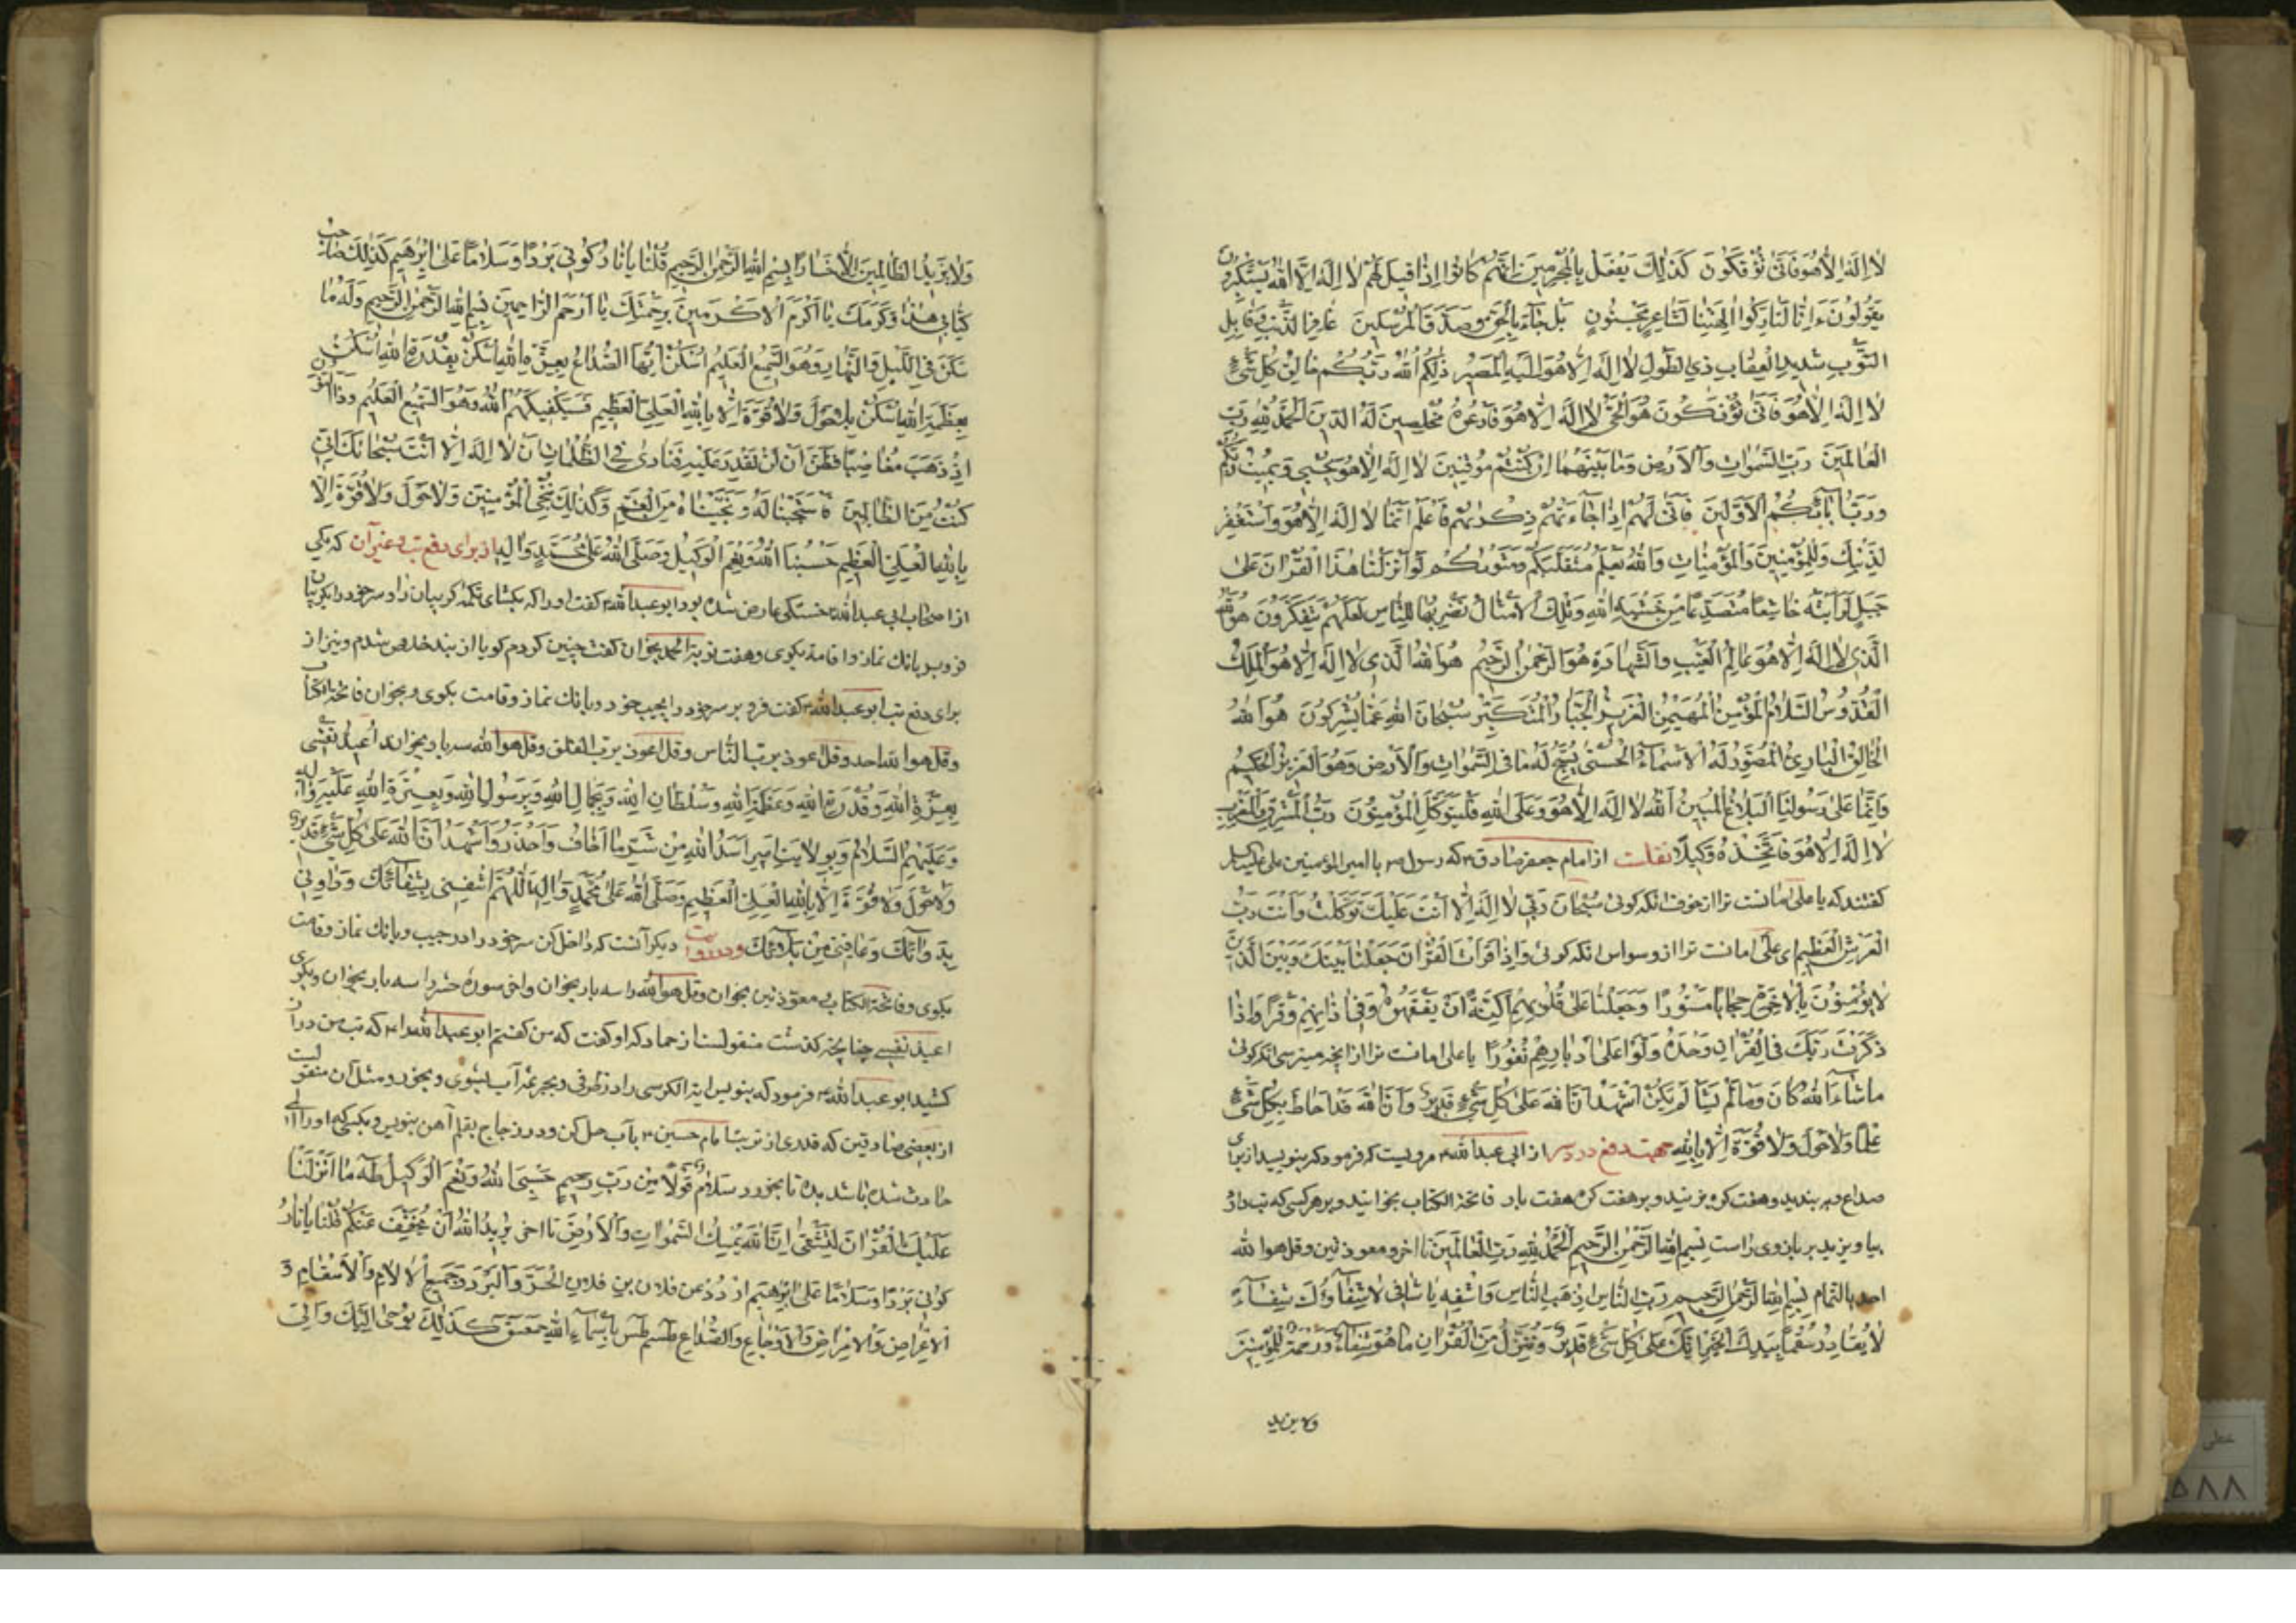 لا اِلهَ اِلّا هُوَ فَاَنّى تُؤْفَكُونَ كَذلِكَ يَفْعَلُ بِالْمُجْرِمينَ اِنَّهُمْ كانُوا اِذا قيلَ لَهُمْ لا اِلهَ اِلَّا اللهُ يَسْتَكْبِرُونَ
يَقُولُونَ ءَاِنّا لَتارِكُوا الِهَتِنا لِشاعِرٍ مَجْنُونٍ بَلْ جاءَ بِالْحَقِّ وَصَدَّقَ الْمُرْسَلينَ غافِرِ الذَّنْبِ وَقابِلِ
التَّوْبِ شَديدِ الْعِقابِ ذِي الطَّوْلِ لا اِلهَ اِلّا هُوَ اِلَيْهِ الْمَصيرُ ذلِكُمُ اللهُ رَبُّكُمْ خالِقُ كُلِّ شَيْءٍ
لا اِلهَ اِلّا هُوَ فَاَنّى تُؤْفَكُونَ هُوَ الْحَيُّ لا اِلهَ اِلّا هُوَ فَادْعُوهُ مُخْلِصينَ لَهُ الدّينَ الْحَمْدُ لِلّهِ رَبِّ
الْعالَمينَ رَبِّ السَّمواتِ وَالْاَرْضِ وَما بَيْنَهُما اِنْ كُنْتُمْ مُوقِنينَ لا اِلهَ اِلّا هُوَ يُحْيي وَيُميتُ رَبُّكُمْ
وَرَبُّ ابائِكُمُ الْاَوَّلينَ فَاَنّى لَهُمْ اِذا جاءَتْهُمْ ذِكْريهُمْ فَاعْلَمْ اَنَّهُ لا اِلهَ اِلّا هُوَ وَاسْتَغْفِرْ
لِذَنْبِكَ وَلِلْمُؤْمِنينَ وَالْمُؤْمِناتِ وَاللهُ يَعْلَمُ مُتَقَلَّبَكُمْ وَمَثْويكُمْ لَوْ اَنْزَلْنا هذَا الْقُرْانَ عَلى
جَبَلٍ لَرَاَيْتَهُ خاشِعًا مُتَصَدِّعًا مِنْ خَشْيَةِ اللهِ وَتِلْكَ الْاَمْثالُ نَضْرِبُها لِلنّاسِ لَعَلَّهُمْ يَتَفَكَّرُونَ هُوَ اللهُ
الَّذي لا اِلهَ اِلّا هُوَ عالِمُ الْغَيْبِ وَالشَّهادَةِ هُوَ الرَّحْمنُ الرَّحيمُ هُوَ اللهُ الَّذي لا اِلهَ اِلّا هُوَ الْمَلِكُ
الْقُدُّوسُ السَّلامُ الْمُؤْمِنُ الْمُهَيْمِنُ الْعَزيزُ الْجَبّارُ الْمُتَكَبِّرُ سُبْحانَ اللهِ عَمّا يُشْرِكُونَ هُوَ اللهُ
الْخالِقُ الْبارِئُ الْمُصَوِّرُ لَهُ الْاَسْماءُ الْحُسْنى يُسَبِّحُ لَهُ ما فِي السَّمواتِ وَالْاَرْضِ وَهُوَ الْعَزيزُ الْحَكيمُ
فَاِنَّما عَلى رَسُولِنَا الْبَلاغُ الْمُبينُ اَللهُ لا اِلهَ اِلّا هُوَ وَعَلَى اللهِ فَلْيَتَوَكَّلِ الْمُؤْمِنُونَ رَبُّ الْمَشْرِقِ وَالْمَغْرِبِ
لا اِلهَ اِلّا هُوَ فَاتَّخِذْهُ وَكيلًا نقلست از امام جعفر صادق ع که رسول ص با امیر المؤمنین علی علیه السلم
کفتند که یا علی امانست ترا از خوف انکه کوئی سُبْحانَ رَبّي لا اِلهَ اِلّا اَنْتَ عَلَيْكَ تَوَكَّلْتُ وَاَنْتَ رَبُّ
الْعَرْشِ الْعَظيمِ ای علی امانست ترا از وسواس انکه کوئی وَاِذا قَرَأْتَ الْقُرْانَ جَعَلْنا بَيْنَكَ وَبَيْنَ الَّذينَ
لا يُؤْمِنُونَ بِالْاخِرَةِ حِجابًا مَسْتُورًا وَجَعَلْنا عَلى قُلُوبِهِمْ اَكِنَّةً اَنْ يَفْقَهُوهُ وَفي اذانِهِمْ وَقْرًا وَاِذا
ذَكَرْتَ رَبَّكَ فِي الْقُرْانِ وَحْدَهُ وَلَّوْا عَلى اَدْبارِهِمْ نُفُورًا یا علی امانست ترا از انچه میترسی انکه کوئی
ما شاءَ اللهُ كانَ وَما لَمْ يَشَأْ لَمْ يَكُنْ اَشْهَدُ اَنَّ اللهَ عَلى كُلِّ شَيْءٍ قَديرٌ وَاَنَّ اللهَ قَدْ اَحاطَ بِكُلِّ شَيْءٍ
عِلْمًا وَلا حَوْلَ وَلا قُوَّةَ اِلّا بِاللهِ جهت دفع درد سر از ابی عبدالله ع مرویست که فرمود که بنویسد از برای
صداع و بربندید و هفت کره بزنید و بر هفت کره هفت بار فاتحة الکتاب بخوانید و بر هر کسی که تب دارد
بیاویزید بر بازوی راست بِسْمِ اللهِ الرَّحْمنِ الرَّحيمِ اَلْحَمْدُ لِلّهِ رَبِّ الْعالَمينَ تا اخر و معوذتین و قل هوا لله
احد بالتمام بِسْمِ اللهِ الرَّحْمنِ الرَّحيمِ رَبَّ النّاسِ اَذْهِبِ الْبَاسَ وَاشْفِهِ يا شافي لا شِفاءَ اِلّا شِفاؤُكَ شِفاءً
لا يُغادِرُ سُقْمًا بِيَدِكَ الْخَيْرُ اِنَّكَ عَلى كُلِّ شَيْءٍ قَديرٌ وَنُنَزِّلُ مِنَ الْقُرْانِ ما هُوَ شِفاءٌ وَرَحْمَةٌ لِلْمُؤْمِنينَ
ولا یزید
وَلا يَزيدُ الظّالِمينَ اِلّا خَسارًا بِسْمِ اللهِ الرَّحْمنِ الرَّحيمِ قُلْنا يا نارُ كُوني بَرْدًا وَسَلامًا عَلى اِبْرهيمَ كَذلِكَ صاحِبُ
كِتابي هذا وَكَرَمِكَ يا اَكْرَمَ الْاَكْرَمينَ بِرَحْمَتِكَ يا اَرْحَمَ الرّاحِمينَ بِسْمِ اللهِ الرَّحْمنِ الرَّحيمِ وَلَهُ ما
سَكَنَ فِي اللَّيْلِ وَالنَّهارِ وَهُوَ السَّميعُ الْعَليمُ اُسْكُنْ اَيُّهَا الصُّداعُ بِعِزَّةِ اللهِ اُسْكُنْ بِقُدْرَةِ اللهِ اُسْكُنْ
بِعَظَمَةِ اللهِ اُسْكُنْ بِلا حَوْلَ وَلا قُوَّةَ اِلّا بِاللهِ الْعَلِيِّ الْعَظيمِ فَسَيَكْفيكَهُمُ اللهُ وَهُوَ السَّميعُ الْعَليمُ وَذَا النُّونِ
اِذْ ذَهَبَ مُغاضِبًا فَظَنَّ اَنْ لَنْ نَقْدِرَ عَلَيْهِ فَنادى فِي الظُّلُماتِ اَنْ لا اِلهَ اِلّا اَنْتَ سُبْحانَكَ اِنّي
كُنْتُ مِنَ الظّالِمينَ فَاسْتَجَبْنا لَهُ وَنَجَّيْناهُ مِنَ الْغَمِّ وَكَذلِكَ نُنْجِي الْمُؤْمِنينَ وَلا حَوْلَ وَلا قُوَّةَ اِلّا
بِاللهِ الْعَلِيِّ الْعَظيمِ حَسْبُنَا اللهُ وَنِعْمَ الْوَكيلُ وَصَلَّى اللهُ عَلى مُحَمَّدٍ وَالِه از برای دفع تب و غیر آن که یکی
از اصحاب ابی عبدالله ع خستکی عارض شده بود ابو عبدالله ع کفت او را که بکشای تکمه کریبان را و سر خود را بکریبان
فرو بر و بانك نماز و اقامة بکوی و هفت نوبة الحمد بخوان کفت چنین کردم کویا از بند خلاص شدم و نیز از
برای دفع تب ابو عبدالله ع کفت فرو بر سر خود را بجیب خود و بانك نماز و قامت بکوی و بخوان فاتحة الکتاب
وقل هوا لله احد وقل اعوذ برب الناس وقل اعوذ برب الفلق وقل هوا لله سه بار و بخوان اُعيذُ نَفْسي
بِعِزَّةِ اللهِ وَقُدْرَةِ اللهِ وَعَظَمَةِ اللهِ وَسُلْطانِ اللهِ وَبِجَمالِ اللهِ وَبِرَسُولِ اللهِ وَبِعِتْرَةِ اللهِ عَلَيْهِ وَالِه
وَعَلَيْهِمُ السَّلامُ وَبِوِلايَتِ اَميرِ اَسَدُ اللهِ مِنْ شَرِّ ما اَخافُ وَاَحْذَرُ وَاَشْهَدُ اَنَّ اللهَ عَلى كُلِّ شَيْءٍ قَديرٌ
وَلا حَوْلَ وَلا قُوَّةَ اِلّا بِاللهِ الْعَلِيِّ الْعَظيمِ وَصَلَّى اللهُ عَلى مُحَمَّدٍ وَالِه اَللّهُمَّ اشْفِني بِشِفائِكَ وَداوِني
بِدَوائِكَ وَعافِني مِنْ بَلائِكَ ودر روایت دیکر آنست که داخل کن سر خود را در جیب و بانك نماز و قامت
بکوی و فاتحة الکتاب و معوذتین بخوان وقل هو الله را سه بار بخوان و اخر سوره حشر را سه بار بخوان و بکوی
اعیذ نفسی چنانچه کذشت منقولست از حماد که او کفت که من کفتم ابو عبدالله را ع که تب من دراز
کشید ابو عبدالله ع فرمود که بنویس ایة الکرسی را در ظرفی و بجرعه آب بشوی و بخور و مثل آن منقولست
از بعضی صادقین که قدری از تربت امام حسین ع بآب حل کن و در زجاج بقلم آهن بنویس و بکسی که او را الم
حادث شده باشد بده تا بخورد سَلامٌ قَوْلًا مِنْ رَبٍّ رَحيمٍ حَسْبِيَ اللهُ وَنِعْمَ الْوَكيلُ طه ما اَنْزَلْنا
عَلَيْكَ الْقُرْانَ لِتَشْقى اِنَّ اللهَ يُمْسِكُ السَّمواتِ وَالْاَرْضَ تا اخر يُريدُ اللهُ اَنْ يُخَفِّفَ عَنْكُمْ قُلْنا يا نارُ
كُوني بَرْدًا وَسَلامًا عَلى اِبْرهيمَ اُرْدُدْ عن فلان بن فلان الْحَرَّ وَالْبَرْدَ وَجَميعَ الْالامِ وَالْاَسْقامِ وَ
الْاَعْراضِ وَالْاَمْراضِ وَالْاَوْجاعِ وَالصُّداعِ طسم طس بِاَسْماءِ اللهِ حمعسق كَذلِكَ يُوحى اِلَيْكَ وَاِلَى
خطی
۵۸۸